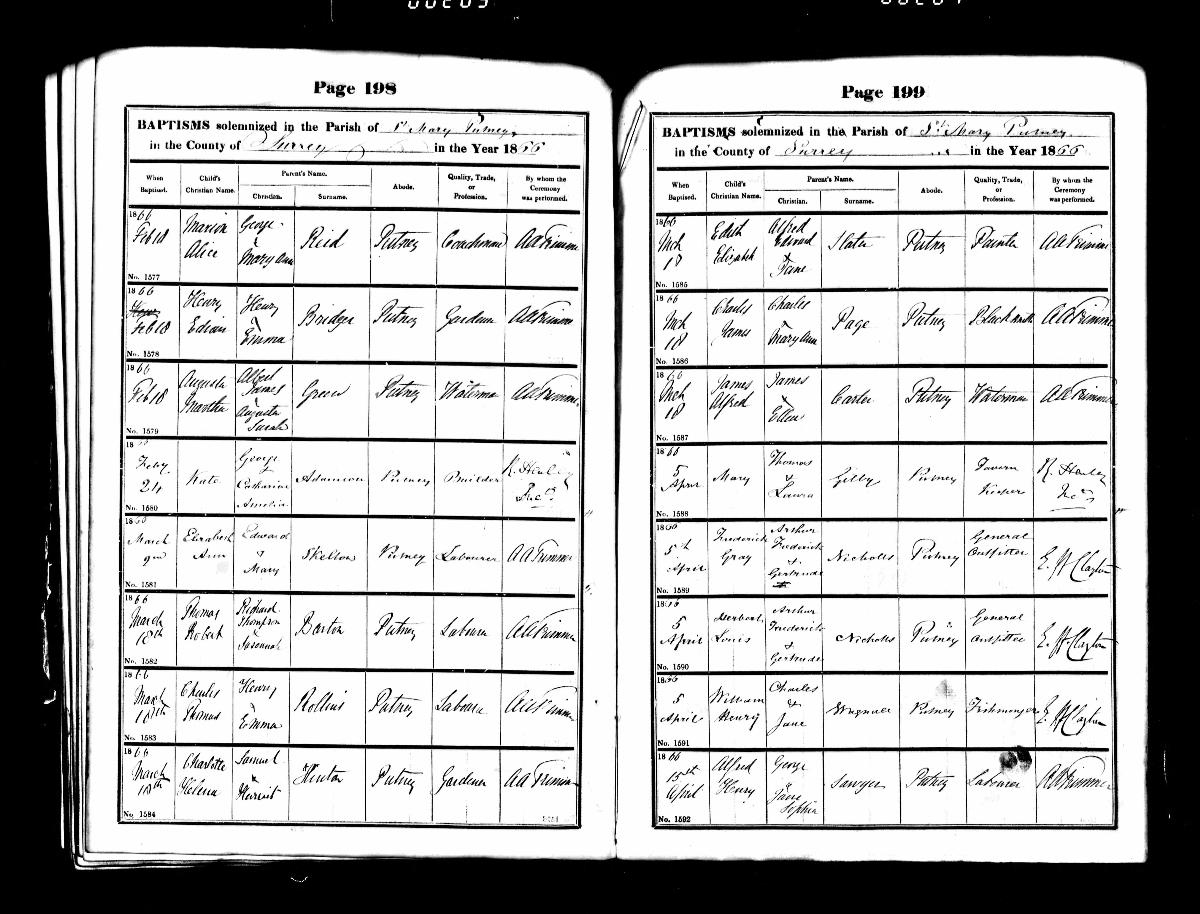 Page 198
BAPTISMS solemnized in the Parish of St Mary Putney
in the County of Surrey in the Year 1866
When Baptised. Child's Christian Name. Parent's Name. Christian. Surname. Abode. Quality, Trade, or Profession. By whom the Ceremony was performed.
1866 Feb 18 Marion Alice George & Mary Ann Reid Putney Coachman
No. 1577
1866 Feb 18 Henry Henry & Emma Bridger Putney Gardener
No. 1578
1866 Feb 18 Augusta Martha Albert James & Augusta Sarah Green Putney Waterman
No. 1579
1866 Feby 24 Kate George & Catharine Amelia Adamson Putney Builder R. Henley
No. 1580
1866 March Elizabeth Ann Edward & Mary Skelton Putney Labourer
No. 1581
1866 March 18th Thomas Robert Richard Thompson & Susannah Barton Putney Labourer
No. 1582
1866 March 18th Charles Thomas Henry & Emma Rollins Putney Labourer
No. 1583
1866 March 18th Charlotte Helena Samuel & Harriet Hinton Putney Gardener
No. 1584
Page 199
BAPTISMS solemnized in the Parish of St Mary Putney
in the County of Surrey in the Year 1866
When Baptised. Child's Christian Name. Parent's Name. Christian. Surname. Abode. Quality, Trade, or Profession. By whom the Ceremony was performed.
1866 Mch 18 Edith Elizabeth Alfred Edward & Jane Slater Putney Painter
No. 1585
1866 Mch 18 Charles James Charles & Mary Ann Page Putney Blacksmith
No. 1586
1866 Mch 18 James Alfred James & Ellen Carter Putney Waterman
No. 1587
1866 5 April Mary Thomas & Laura Gilby Putney Tavern Keeper R. Henley
No. 1588
1866 5th April Frederick Gray Arthur Frederick & Gertrude Nicholls Putney General Outfitter E. H. Clayton
No. 1589
1866 5 April Herbert Louis Arthur Frederick & Gertrude Nicholls Putney General Outfitter E. H. Clayton
No. 1590
1866 5 April William Henry Charles & Jane Putney Fishmonger E. H. Clayton
No. 1591
1866 15th April Alfred Henry George & Jane Sophia Sawyer Putney Labourer
No. 1592